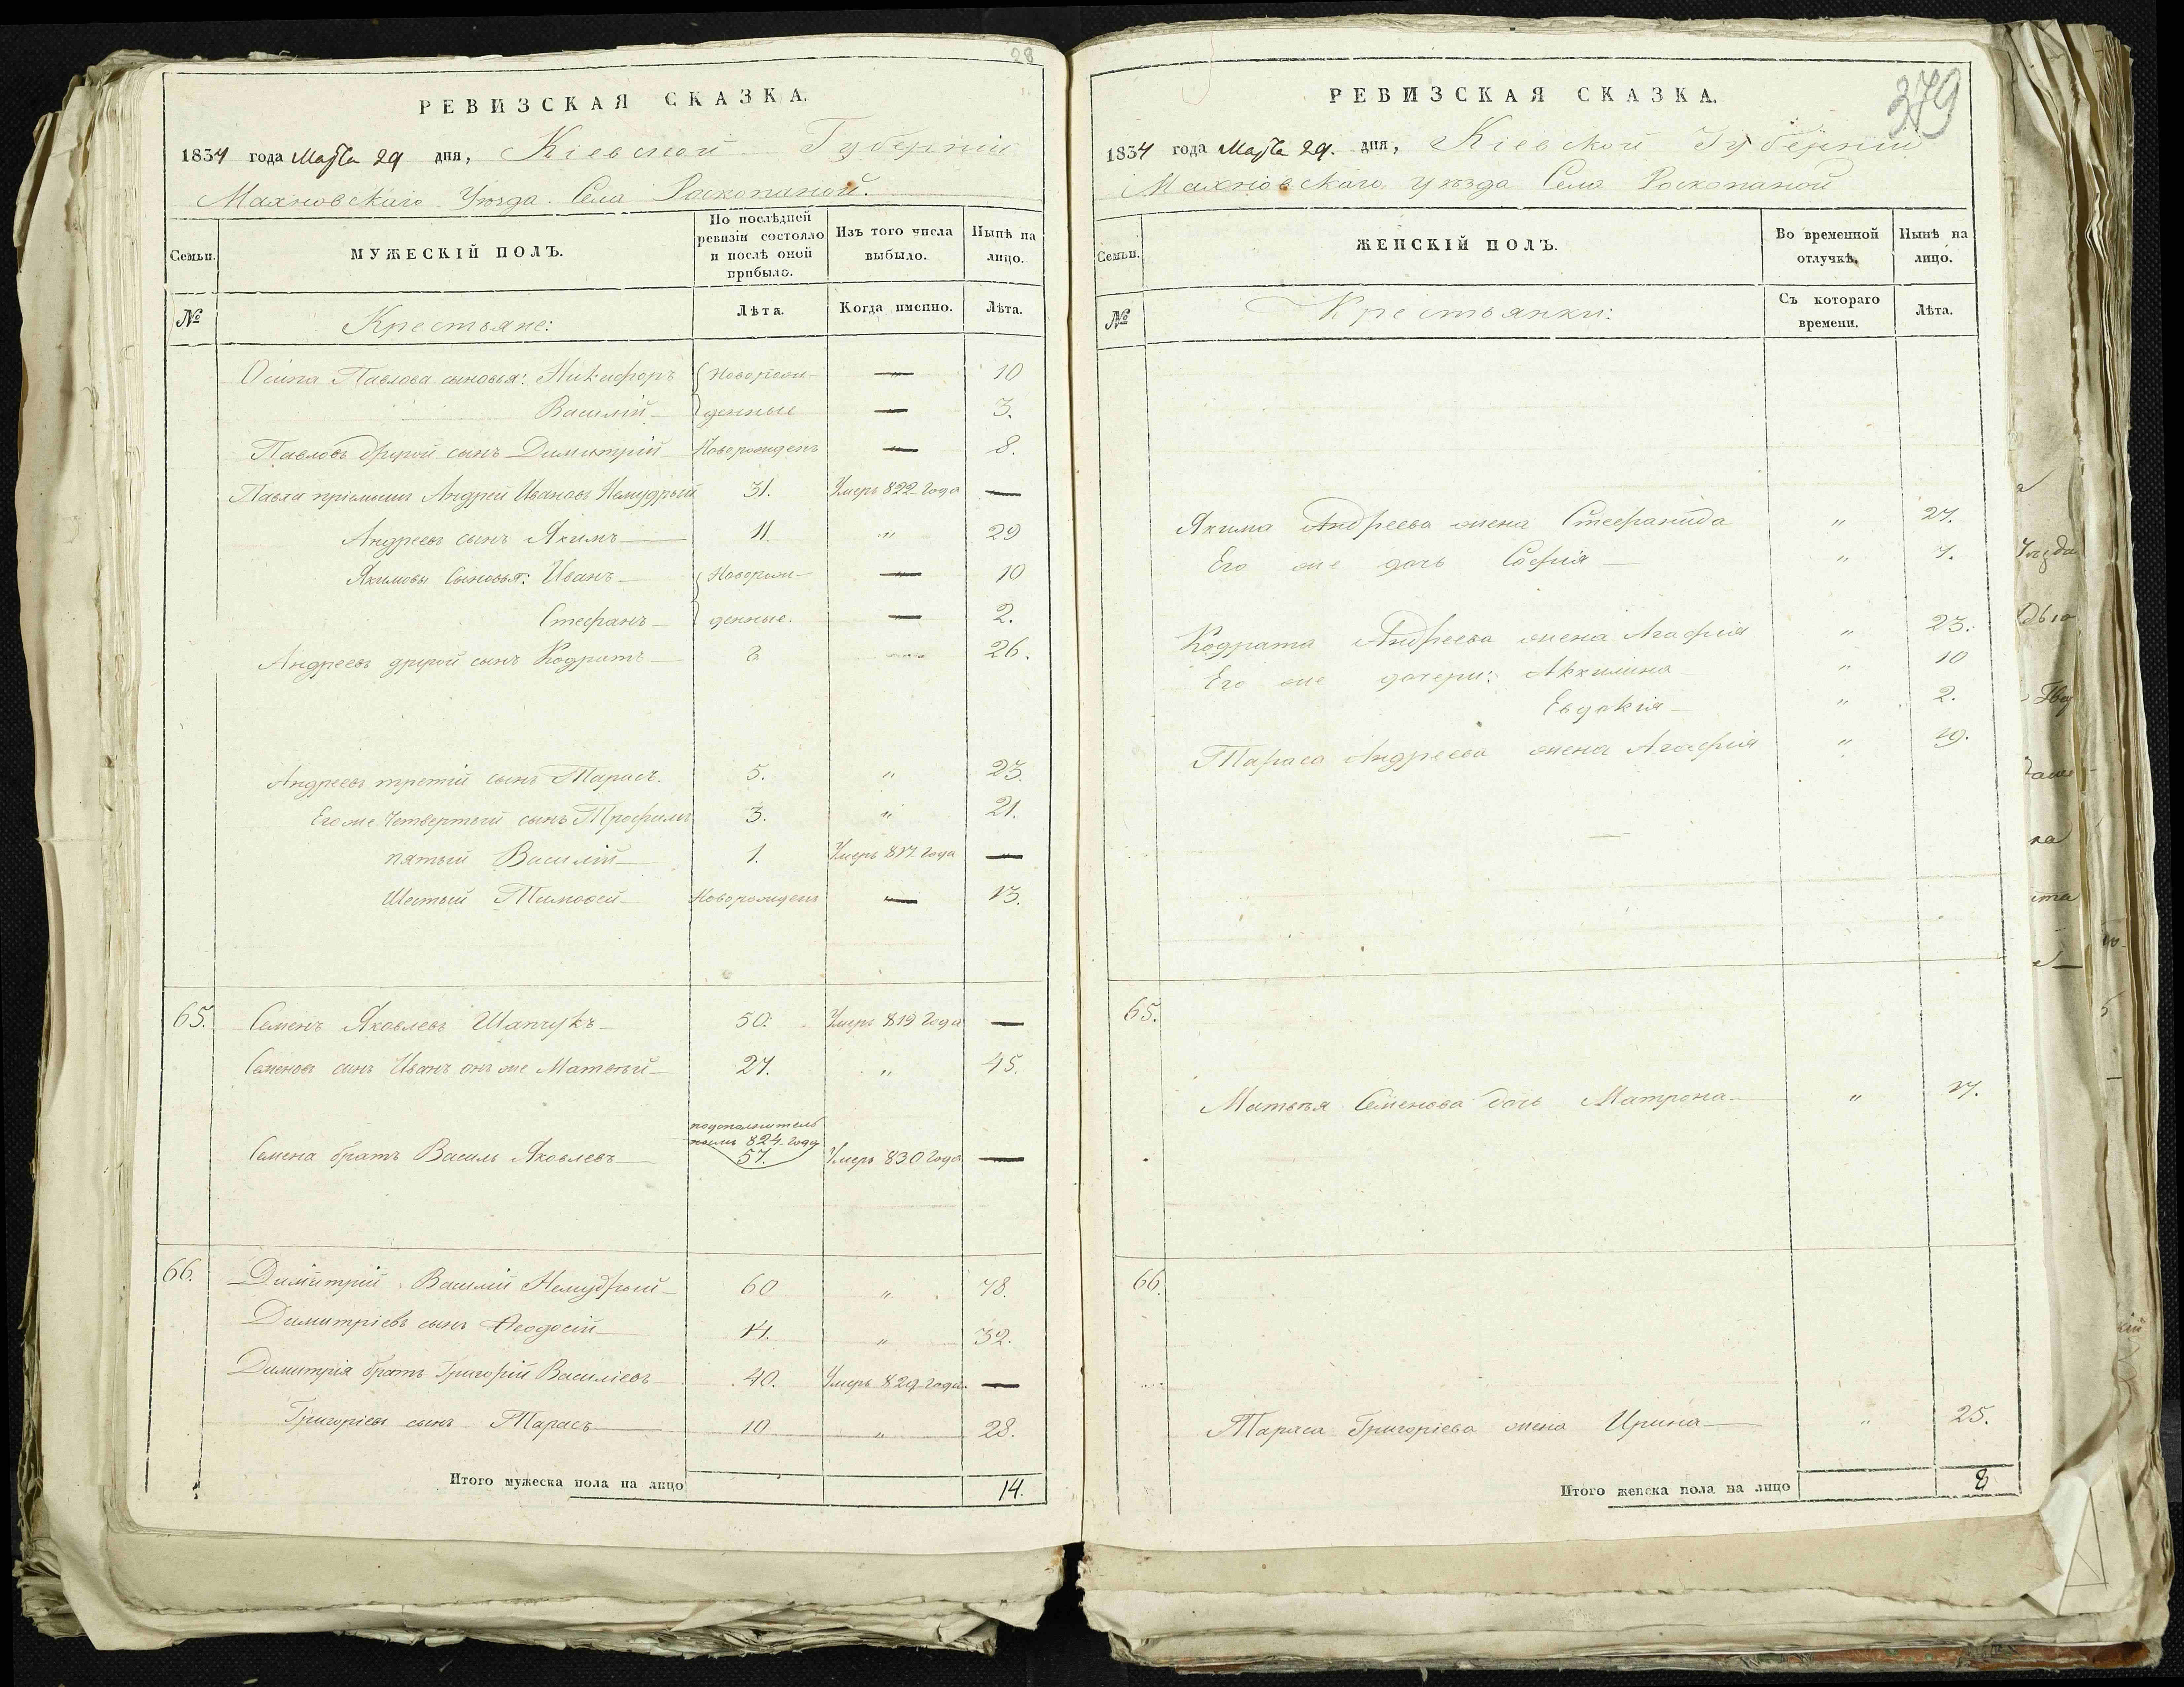 28
РЕВИЗСКАЯ СКАЗКА.
1834 года Марта 29 дня, Кіевской Губерніи
Махновскаго Уѣзда. Села Роскопаной.
Семьи.
МУЖЕСКІЙ ПОЛЪ.
По послѣдней ревизіи состояло и послѣ оной прибыло.
Изъ того числа выбыло.
Нынѣ на лицо.
№
Крестьяне:
Лѣта.
Когда именно.
Лѣта.
Осипа Павлова сыновья: Никифоръ Новорож- — 10
Василій — денные — 3.
Павловъ другой сынъ Димитрій Новорожденъ — 8.
Павла пріемышъ Андрей Ивановъ Немудрый 31. Умеръ 822 года —
Андреевъ сынъ Якимъ — 11. " 29
Якимовы сыновья: Иванъ — Новорож- — 10
Стефанъ — денные. — 2.
Андреевъ другой сынъ Кодратъ — 8 " 26.
Андреевъ третій сынъ Тарасъ. 5. " 23.
Его же четвертый сынъ Трофимъ 3. " 21.
пятый Василій — 1. Умеръ 817 года —
Шестый Тимофей — Новорожденъ — 13.
65. Семенъ Яковлевъ Шапчукъ — 50. Умеръ 819 года —
Семеновъ сынъ Иванъ онъ же Матвѣй — 27. " 45.
824 году
Семена братъ Василь Яковлевъ — 57. Умеръ 830 года —
66. Димитрій Василій Немудрый — 60 " 78.
Димитріевъ сынъ Феодосій — 14. " 32.
Димитрія братъ Григорій Василіевъ 40. Умеръ 829 года. —
Григоріевъ сынъ Тарасъ — 10 " 28.
Итого мужеска пола на лицо 14.
379
РЕВИЗСКАЯ СКАЗКА.
1834 года Марта 29. дня, Кіевской Губерніи
Махновскаго уѣзда Села Роскопаной
Семьи.
ЖЕНСКІЙ ПОЛЪ.
Во временной отлучкѣ.
Нынѣ на лицо.
№
Крестьянки:
Съ котораго времени.
Лѣта.
Якима Андреева жена Стефанида " 27.
Его же дочь Софія — " 7.
Кодрата Андреева жена Агафія " 23.
Его же дочери: Акилина — " 10
Евдокія — " 2.
Тараса Андреева жена Агафія " 19.
65.
Матвѣя Семенова дочь Матрона — " 17.
66.
Тараса Григоріева жена Ирина — " 25.
Итого женска пола на лицо 8